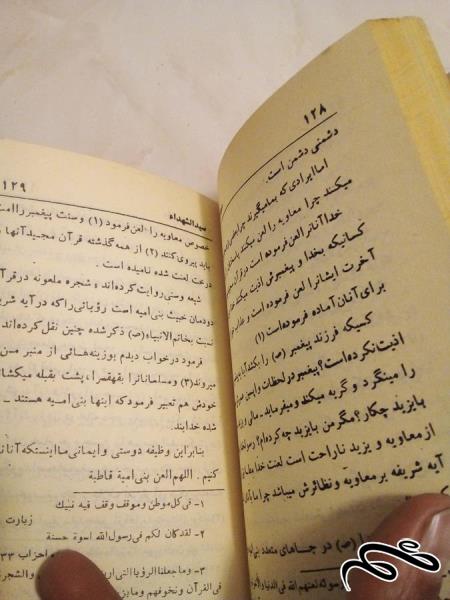 ۱۲۸
دشمنی دشمن است.
اما ایرادی که بما میگیرند چرا
میکنند چرا معاویه را لعن میکنند پاسخ
خدا آنانرا لعن فرموده است در قرآن
کسانیکه بخدا و پیغمبرش اذیت میکند
آخرت ایشانرا لعن فرموده است و عذاب
برای آنان آماده فرموده است (۱)
کسیکه فرزند پیغمبر (ص) را بکشد آیا
اذیت نکرده است؟ پیغمبر در لحظات واپسین
را مینگرد و گریه میکند و میفرماید - مالی و
با یزید چکار؟ مگر من با یزید چه کرده‌ام؟
از معاویه و یزید ناراحت است لعنت خدا
آیه شریفه بر معاویه و نظائرش میباشد چرا ما
(ص) در جاهای متعدد
الله فی الدنیا
۱۲۹
سیدالشهداء
خصوص معاویه را لعن فرمود (۱) وسنت پیغمبر را
باید پیروی کنند (۲) از همه گذشته قرآن مجید آنها
درخت لعنت شده نامیده است.
شیعه وسنی روایت کرده‌اند، شجره ملعونه در
دودمان خبیث بنی امیه است رؤیائی را که در آیه
نسبت بخاتم الانبیاء (ص) ذکر شده چنین نقل کرده‌اند
فرمود در خواب دیدم بوزینه‌هائی از منبر من
میروند (۳) و مسلمانانرا بقهقرا، پشت بقبله میکشا
خودش هم تعبیر فرمود که اینها بنی امیه هستند -
شده خدایند.
بنابراین وظیفه دوستی و ایمانی ما اینستکه آنانرا
کنیم. اللهم العن بنی امیة قاطبة
۱- فی کل موطن وموقف وقف فیه نبیک
زیارت
۲- لقد کان لکم فی رسول الله اسوة حسنة
احزاب ۳۳
۳- وما جعلنا الرؤیا التی
فی القرآن و نخوفهم و ما